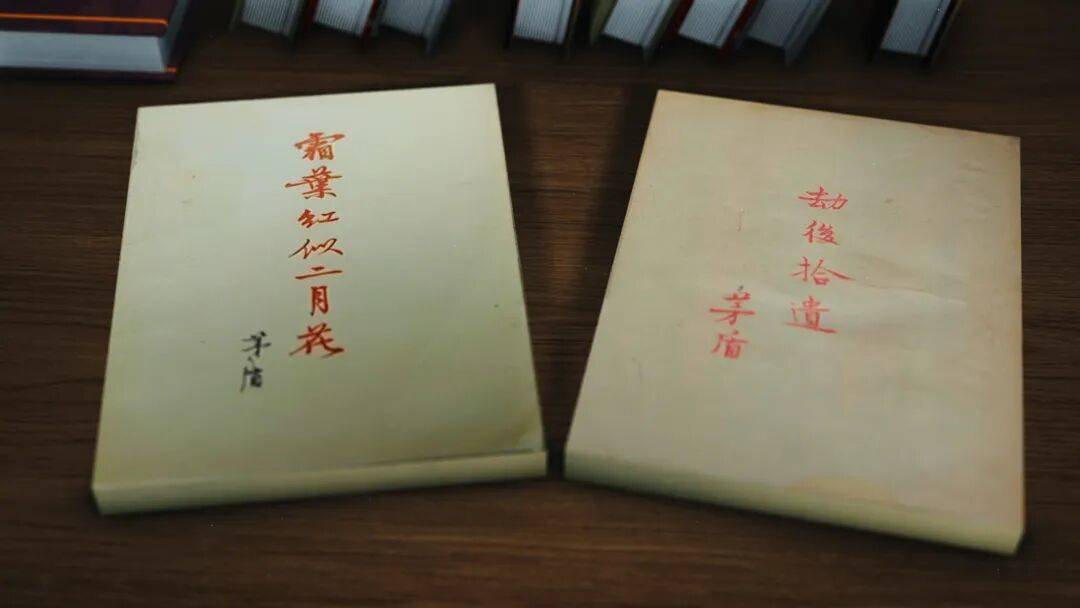 霜葉紅似二月花
茅盾
劫後拾遺
茅盾